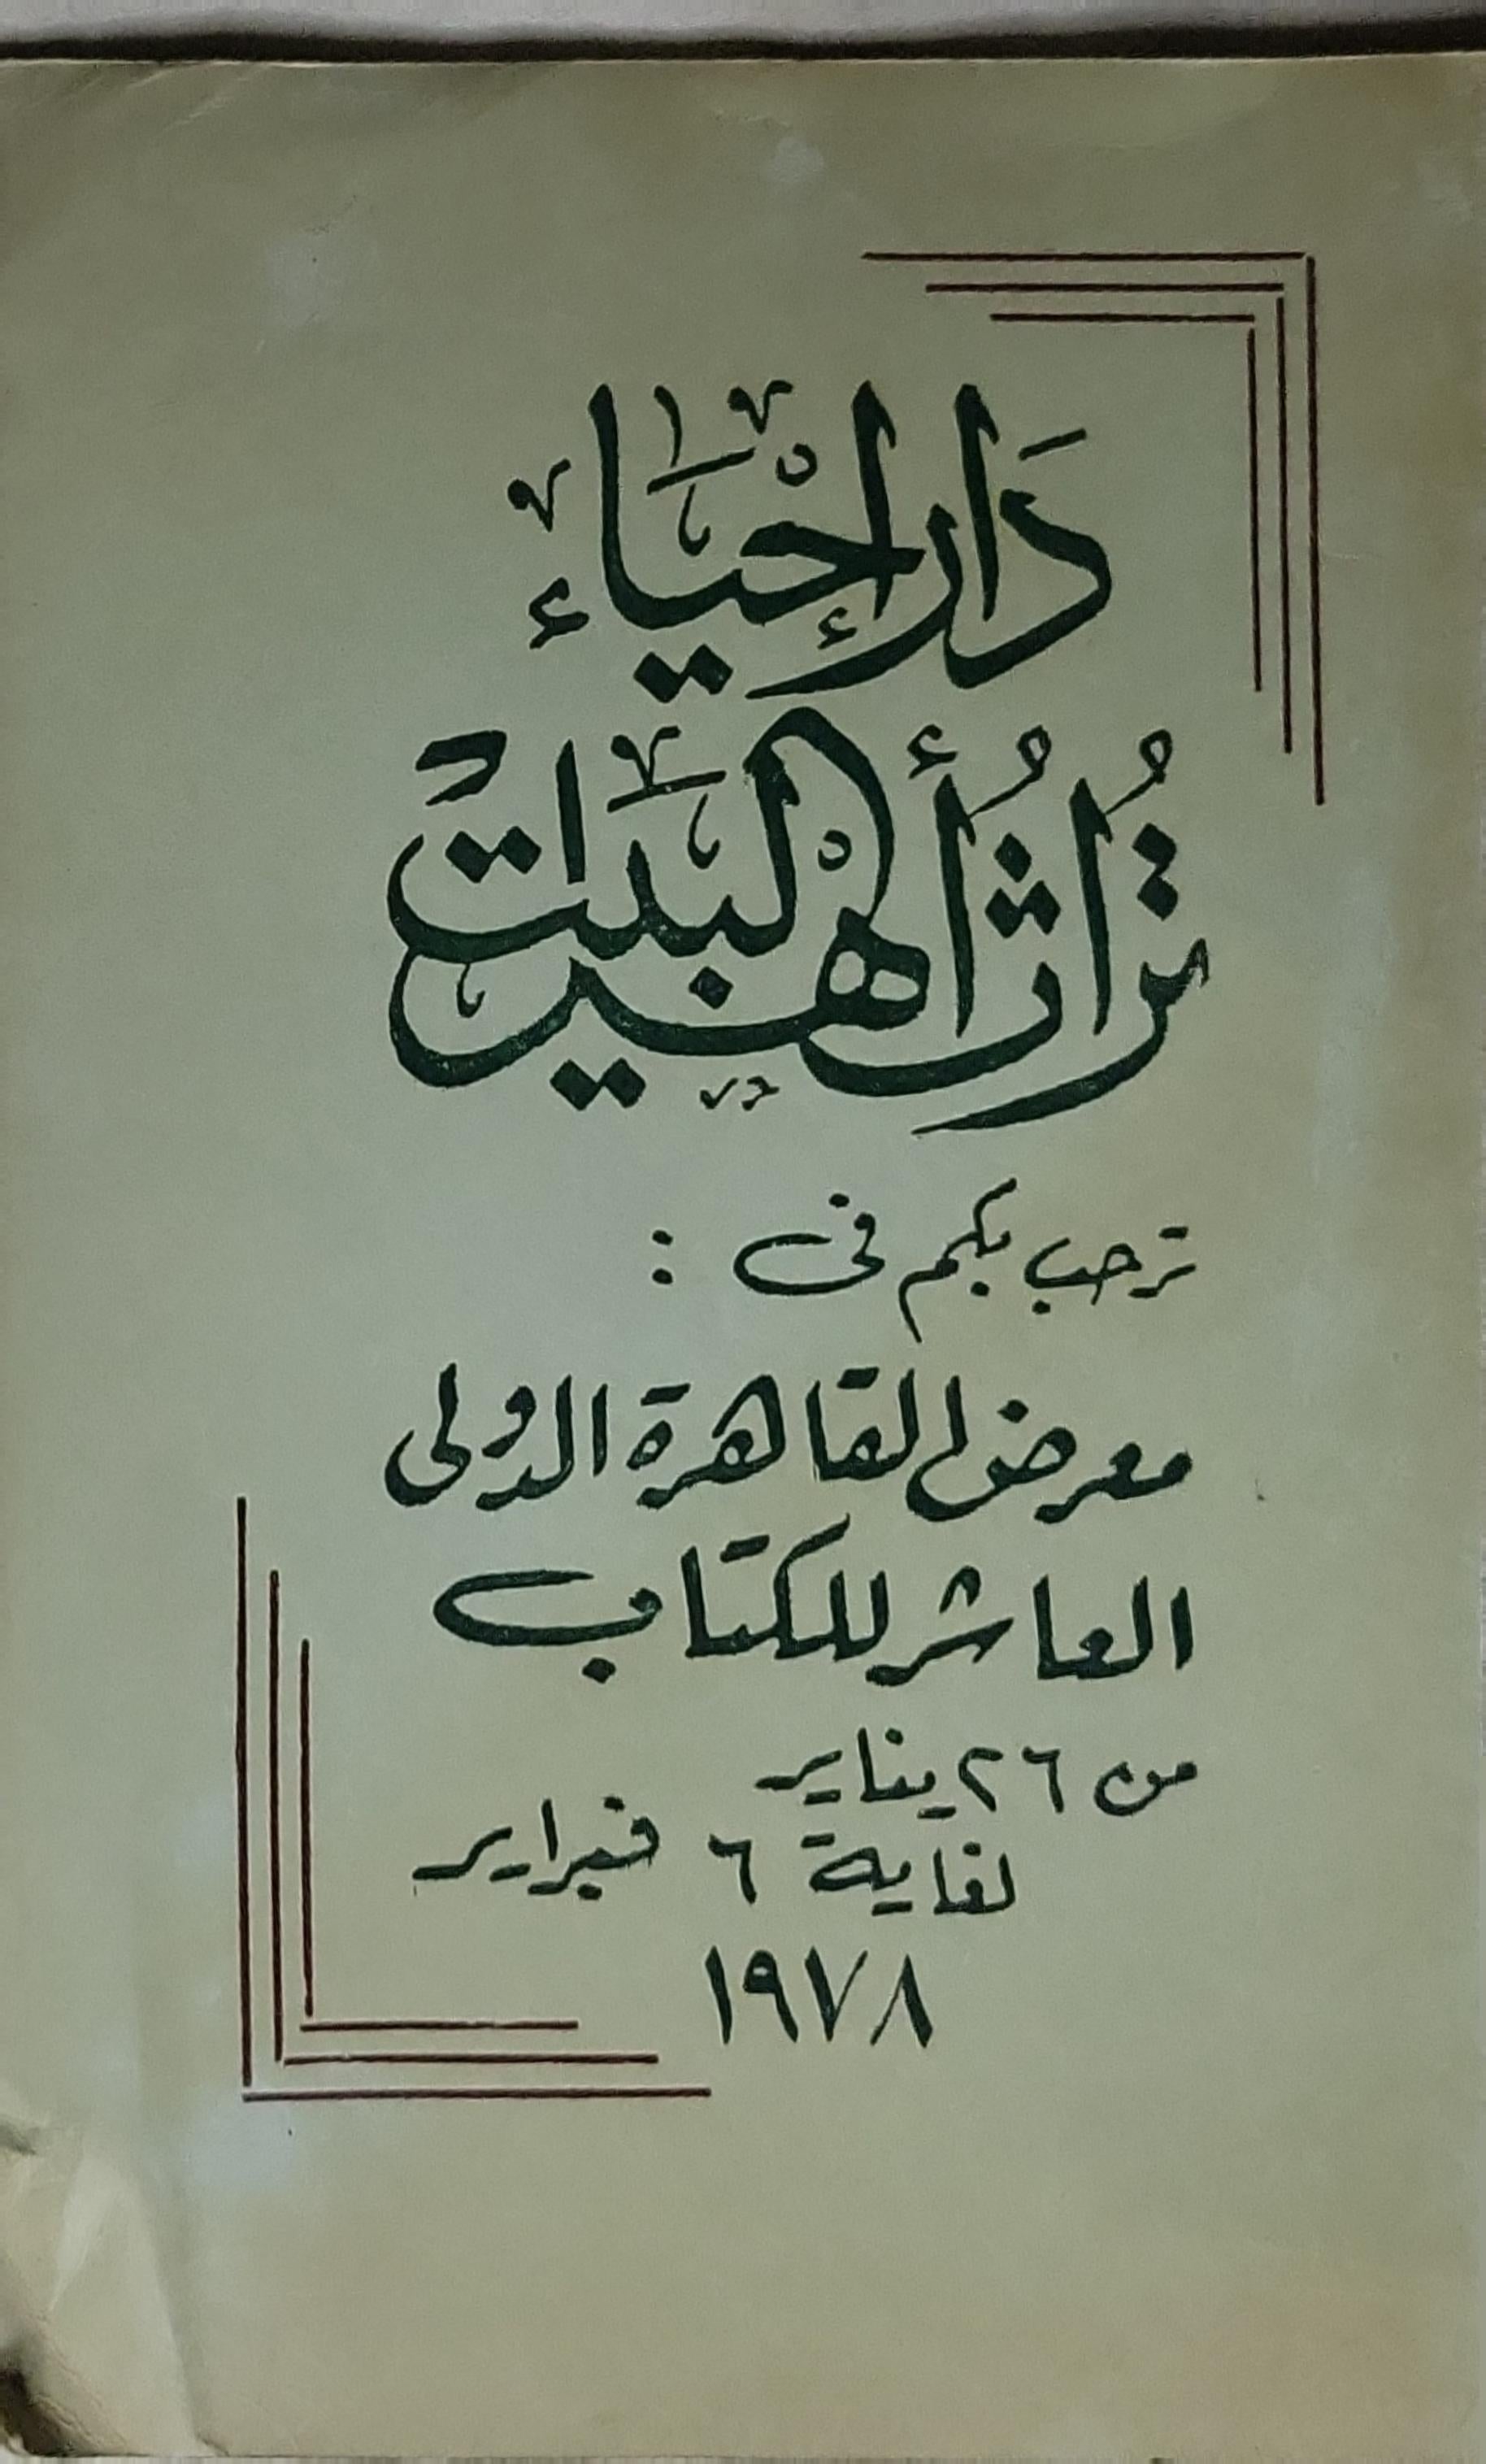 دَار إحْيَاء
تُراثُ أهْل البَيت
ترحب بكم فى :
معرض القاهرة الدولى
العاشر للكتاب
من ٢٦ يناير
لغاية ٦ فبراير
١٩٧٨